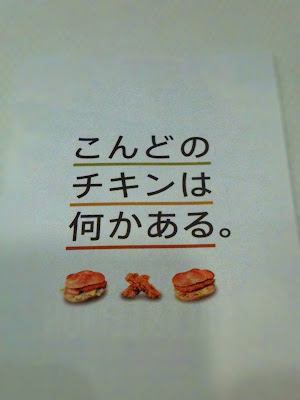 こんどの
チキンは
何かある。